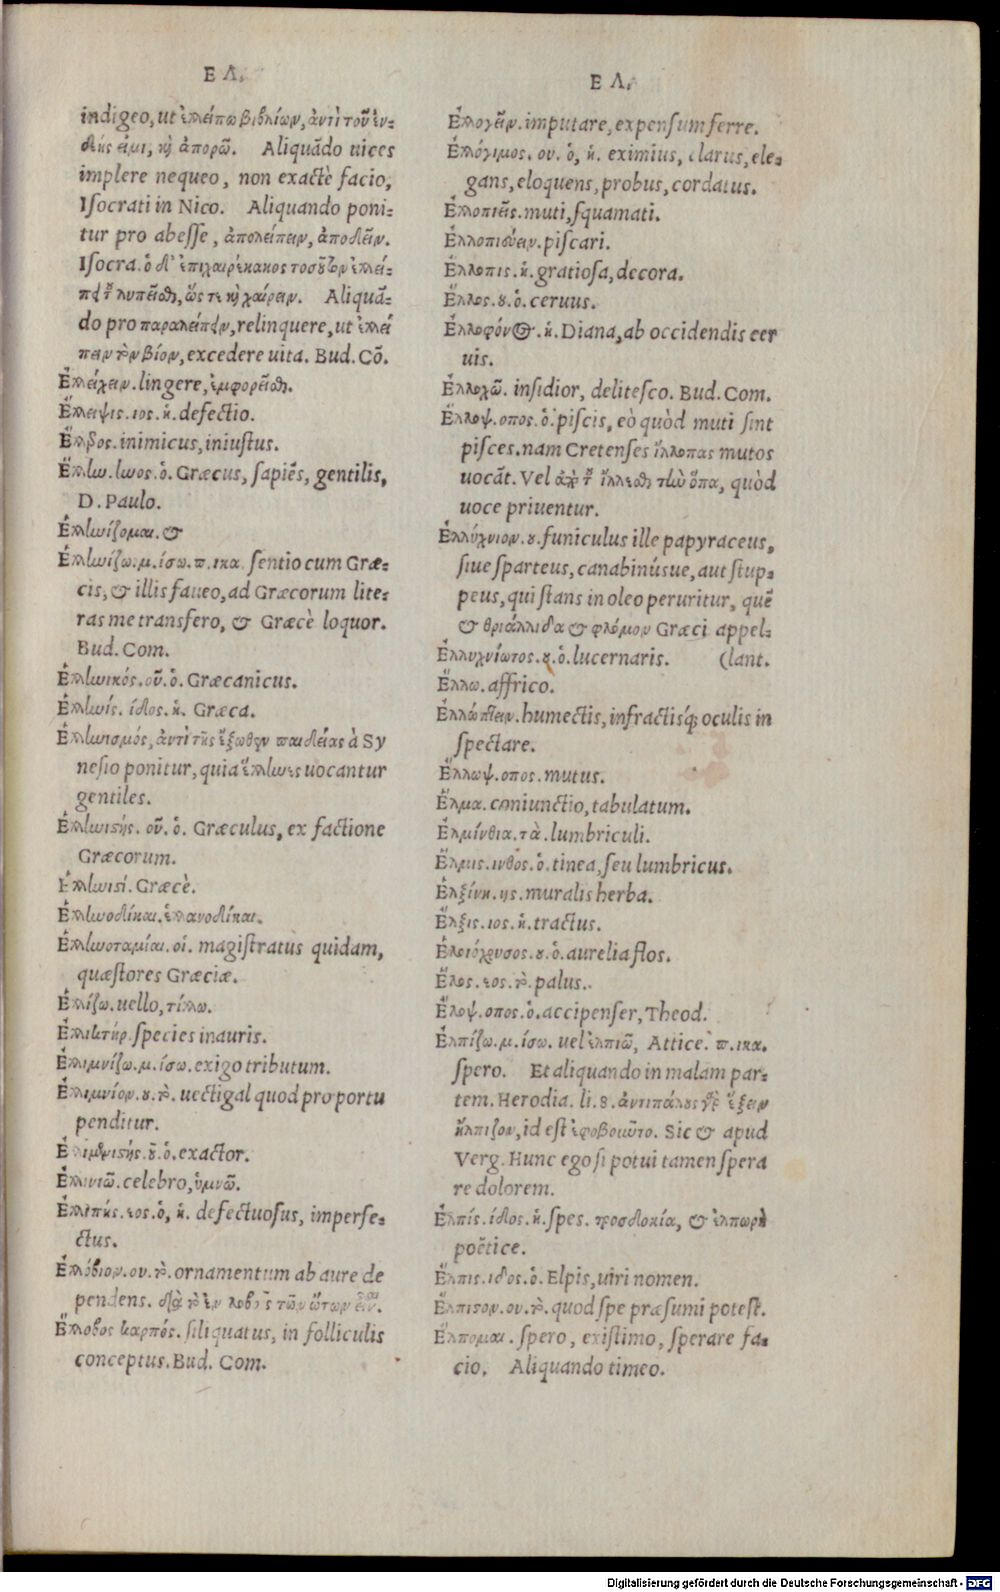 ΕΛ.
indigeo, ut ἐλλείπω βιβλίων, ἀντὶ τοῦ ἐν-
δεής εἰμι, καὶ ἀπορῶ. Aliquādo uices
implere nequeo, non exactè facio,
Isocrati in Nico. Aliquando poni-
tur pro abesse, ἀπολείπειν, ἀποδεῖν.
Isocra. ὁ δ' ἐπιχαιρέκακος τοσοῦτον ἐλλεί-
πει τοῦ λυπεῖσθαι, ὥς τε καὶ χαίρειν. Aliquā-
do pro παραλείπειν, relinquere, ut ἐλλεί
πειν τὸν βίον, excedere uita. Bud. Cō.
Ἐλλείχειν. lingere, ἐμφορεῖσθαι.
Ἔλλειψις. ιος. ἡ. defectio.
inimicus, iniustus.
Ἕλλην. ηνος. ὁ. Græcus, sapiēs, gentilis,
D. Paulo.
Ἑλληνίζομαι. &
Ἑλληνίζω. μ. ίσω. π. ικα. sentio cum Græ-
cis, & illis faueo, ad Græcorum lite-
ras me transfero, & Græcè loquor.
Bud. Com.
Ἑλληνικός. οῦ. ὁ. Græcanicus.
Ἑλληνίς. ίδος. ἡ. Græca.
Ἑλληνισμός, ἀντὶ τῆς ἔξωθεν παιδείας à Sy
nesio ponitur, quia ἕλληνες uocantur
gentiles.
Ἑλληνιστής. οῦ. ὁ. Græculus, ex factione
Græcorum.
Ἑλληνιστί. Græcè.
Ἑλληνοδίκαι. ἑλλανοδίκαι.
Ἑλληνοταμίαι. οἱ. magistratus quidam,
quæstores Græciæ.
Ἐλλίζω. uello, τίλλω.
species inauris.
Ἐλλιμνίζω. μ. ίσω. exigo tributum.
Ἐλλιμνίον. ου. τὸ. uectigal quod pro portu
penditur.
Ἐλλιμενιστής. οῦ. ὁ. exactor.
Ἐλλινιῶ. celebro, ὑμνῶ.
Ἐλλιπής. εος. ὁ, ἡ. defectuosus, imperfe-
ctus.
Ἐλλόβιον. ου. τὸ. ornamentum ab aure de
pendens. διὰ τὸ ἐν λοβοῖς τῶν ὤτων εἶναι.
Ἔλλοβος καρπός. siliquatus, in folliculis
conceptus. Bud. Com.
ΕΛ.
Ἐλλογεῖν. imputare, expensum ferre.
Ἐλλόγιμος. ου. ὁ, ἡ. eximius, clarus, ele-
gans, eloquens, probus, cordatus.
Ἐλλοπιεῖς. muti, squamati.
Ἐλλοπιεύειν. piscari.
Ἔλλοπις. ἡ. gratiosa, decora.
Ἔλλος. ου. ὁ. ceruus.
Ἐλλοφόνος. ἡ. Diana, ab occidendis cer
uis.
Ἐλλοχῶ. insidior, delitesco. Bud. Com.
Ἔλλοψ. οπος. ὁ. piscis, eò quòd muti sint
pisces. nam Cretenses ἴλλοπας mutos
uocāt. Vel ἀπὸ τοῦ ἴλλεσθαι τὴν ὄπα, quòd
uoce priuentur.
Ἐλλύχνιον. ου. funiculus ille papyraceus,
siue sparteus, canabinúsue, aut stup-
peus, qui stans in oleo peruritur, quē
& θριαλλίδα & φλόμον Græci appel-
Ἐλλυχνίωτος. ου. ὁ. lucernaris. (lant.
Ἔλλω. affrico.
Ἐλλώπτειν. humectis, infractisq; oculis in
spectare.
Ἔλλωψ. οπος. mutus.
Ἔλμα. coniunctio, tabulatum.
Ἑλμίνθια. τὰ. lumbriculi.
Ἕλμις. ινθος. ὁ. tinea, seu lumbricus.
Ἑλξίνη. ης. muralis herba.
Ἕλξις. ιος. ἡ. tractus.
Ἑλοιόχρυσος. ου. ὁ. aurelia flos.
Ἕλος. εος. τὸ. palus.
Ἔλοψ. οπος. ὁ. accipenser, Theod.
Ἐλπίζω. μ. ίσω. uel ἐλπιῶ, Attice. π. ικα.
spero. Et aliquando in malam par-
tem. Herodia. li. 8. ἀντιπάλους γὰρ ἕξειν
ἤλπιζον, id est ἐφοβοῦντο. Sic & apud
Verg. Hunc ego si potui tamen spera
re dolorem.
Ἐλπίς. ίδος. ἡ. spes. προσδοκία, & ἐλπωρὴ
poëtice.
Ἔλπις. ιδος. ὁ. Elpis, uiri nomen.
Ἔλπιστον. ου. τὸ. quod spe præsumi potest.
Ἔλπομαι. spero, existimo, sperare fa-
cio. Aliquando timeo.
Digitalisierung gefördert durch die Deutsche Forschungsgemeinschaft - DFG